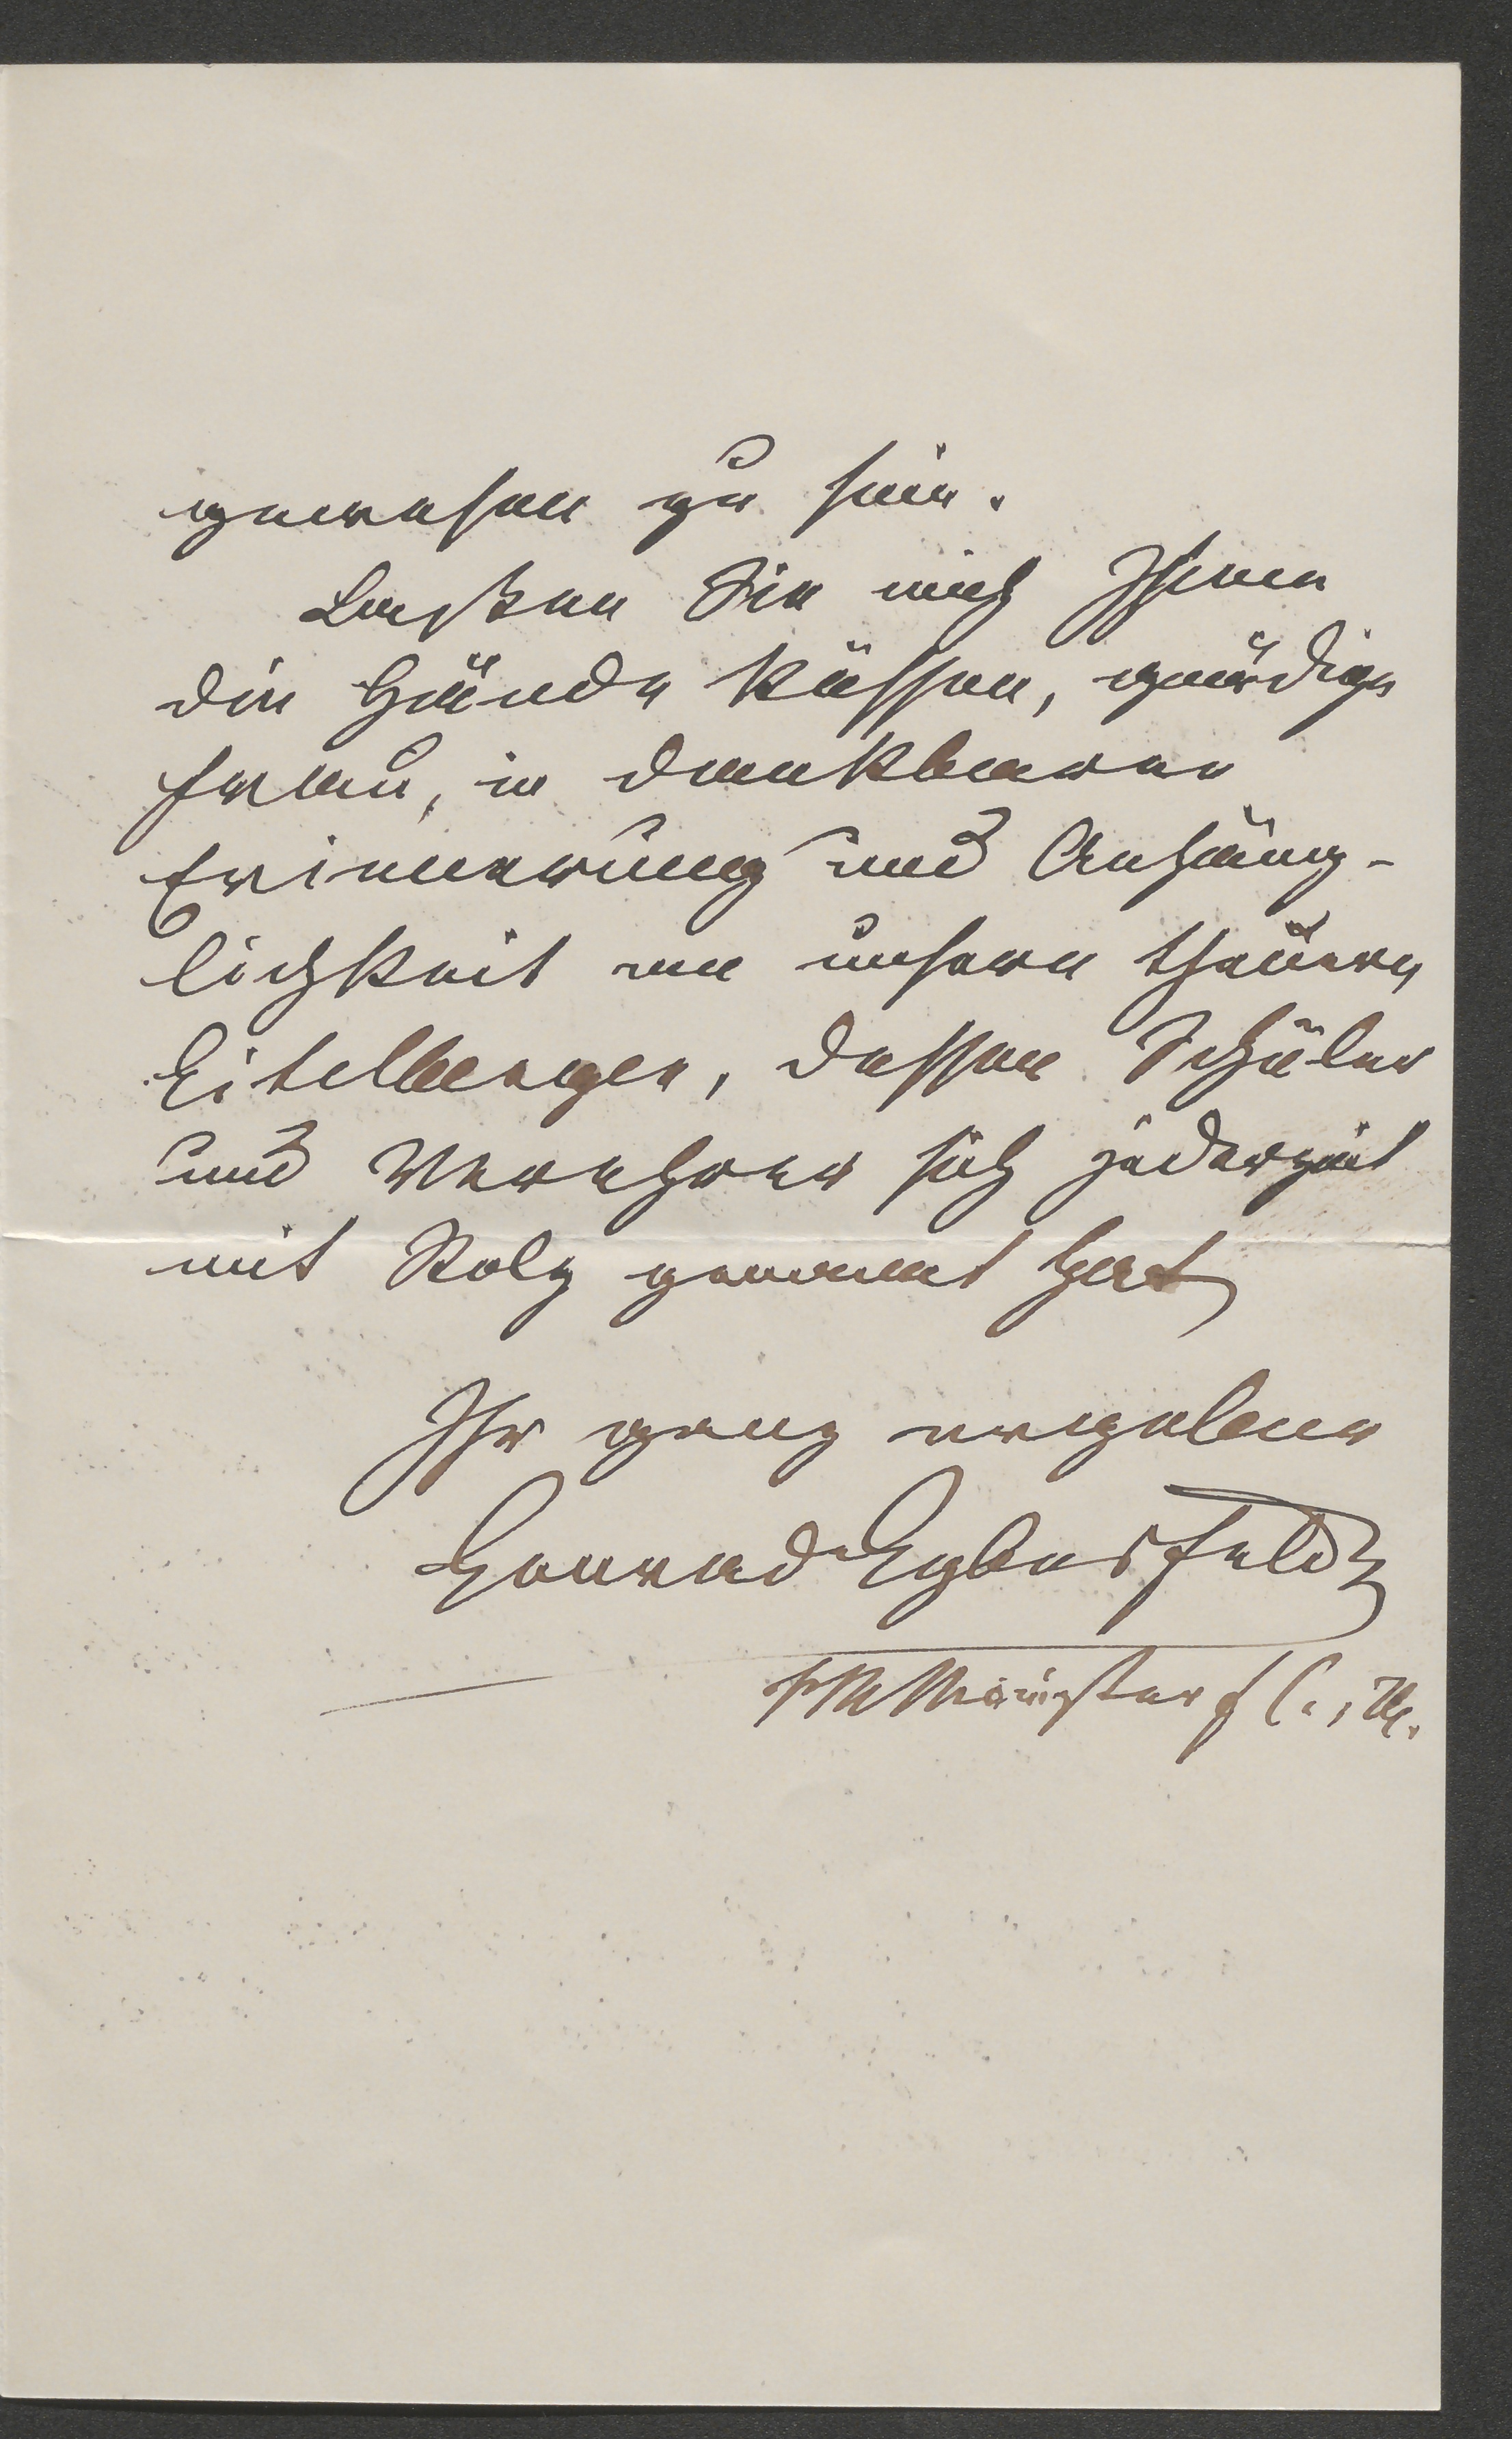 gewesen zu sein.
Laßen Sie mich Ihnen
die Hände küssen, gnädige
Frau, in dankbarer
Erinnerung und Anhäng-
lichkeit an unsern theuern
Eitelberger, dessen Schüler
und Verehrer sich jederzeit
mit Stolz genannt hat
Ihr ganz ergebener
Conrad Eybesfeld